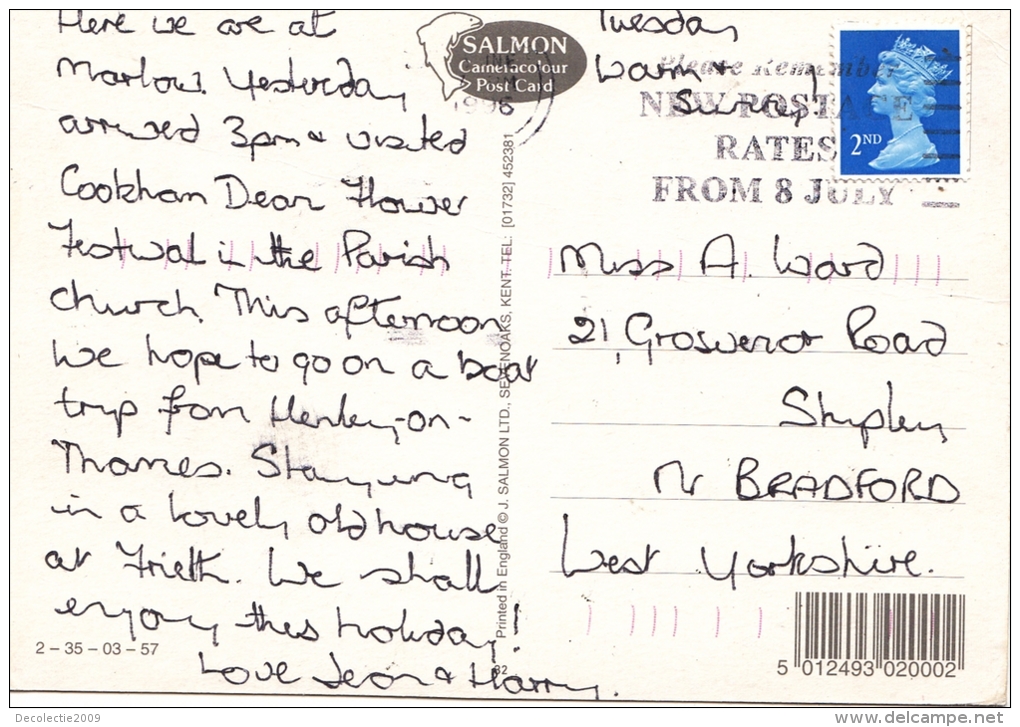 Here we are at
Marlow. Yesterday
arrived 3pm & visited
Cookham Dean Flower
Festival in the Parish
church. This afternoon
we hope to go on a boat
trip from Henley-on-
Thames. Staying
in a lovely old house
at Frieth. We shall
enjoy this holiday!
Love Jean & Harry.
2 – 35 – 03 – 57
SALMON
Cameracolour
Post Card
1996
Printed in England © J. SALMON LTD., SEVENOAKS, KENT. TEL: [01732] 452381
82
Tuesday
Warm &
Sunny
Please Remember
NEW POSTAGE
RATES
FROM 8 JULY
2ND
Miss A. Ward
21, Grosvenor Road
Shipley
Nr BRADFORD
West Yorkshire.
5 012493 020002
Decolectie2009
www.delcampe.net